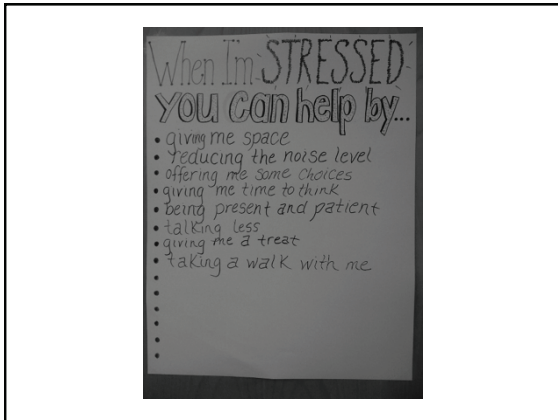 When I'm STRESSED
you can help by...
• giving me space
• reducing the noise level
• offering me some choices
• giving me time to think
• being present and patient
• talking less
• giving me a treat
• taking a walk with me
•
•
•
•
•
•
•